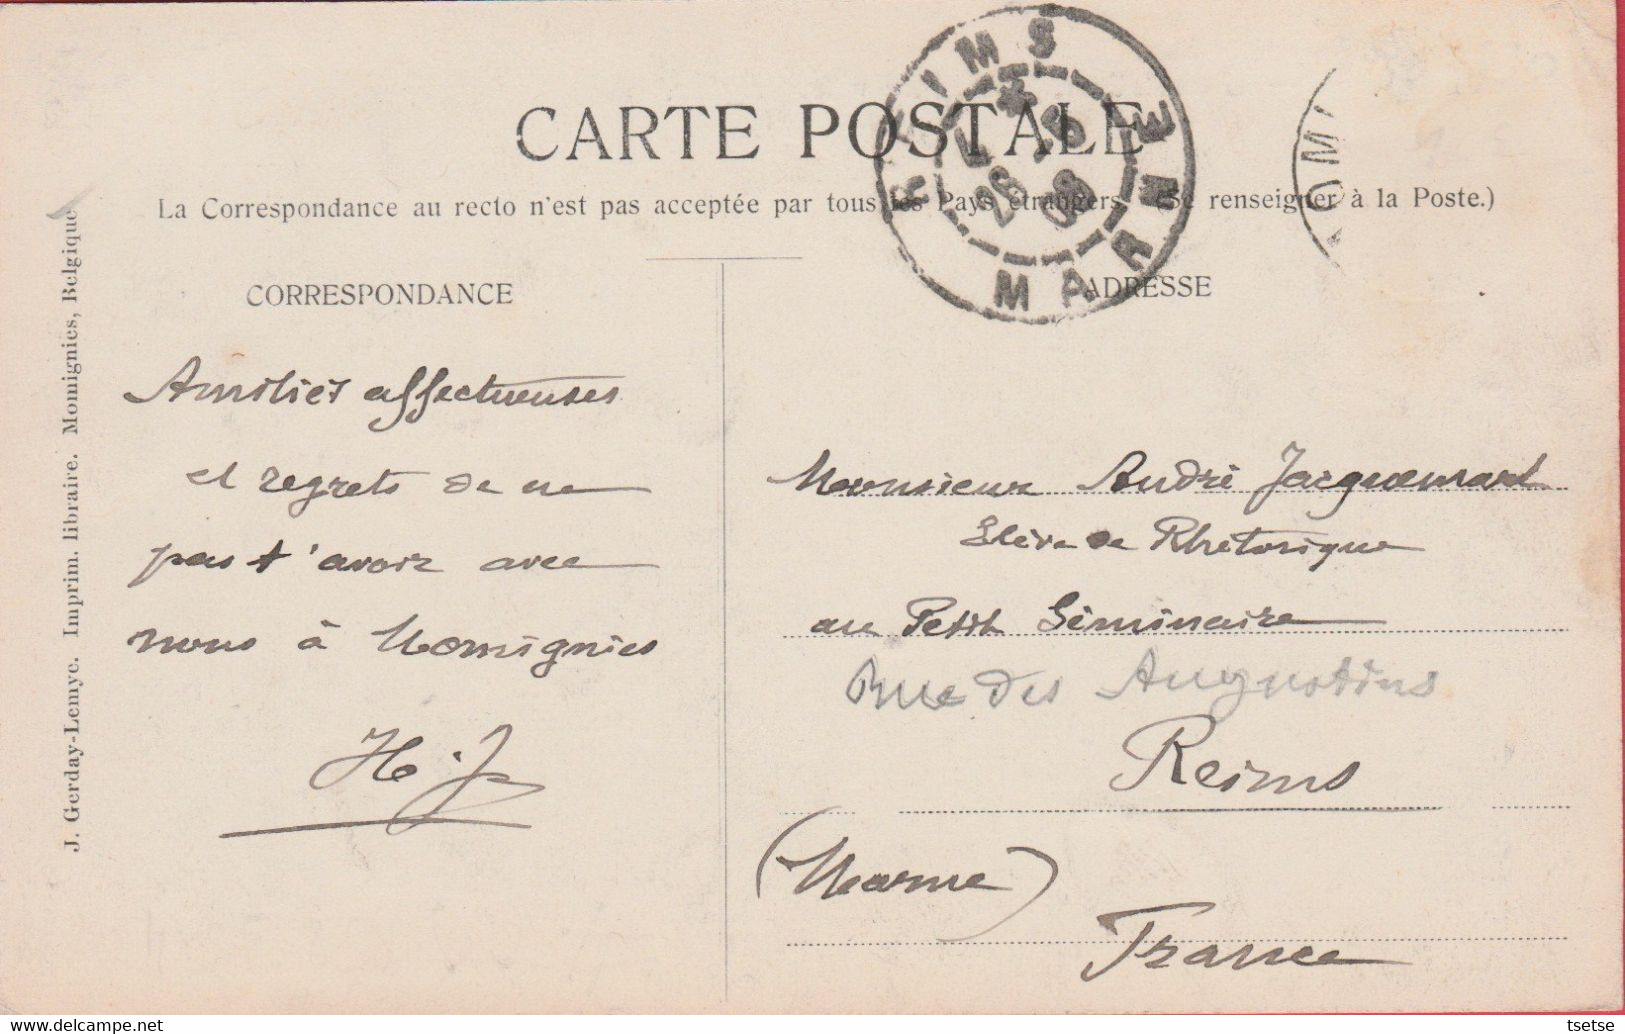 CARTE POSTALE
La Correspondance au recto n'est pas acceptée par tous les Pays étrangers. (Se renseigner à la Poste.)
REIMS
MARNE
CORRESPONDANCE
Amitiés affectueuses
et regrets de ne
pas t'avoir avec
nous à Momignies
H. J.
ADRESSE
Monsieur André Jacquemart
Elève de Rhétorique
au Petit Séminaire
Rue des Augustins
Reims
(Marne)
France
J. Gerday-Lemye. Imprim. libraire. Momignies, Belgique
tsetse